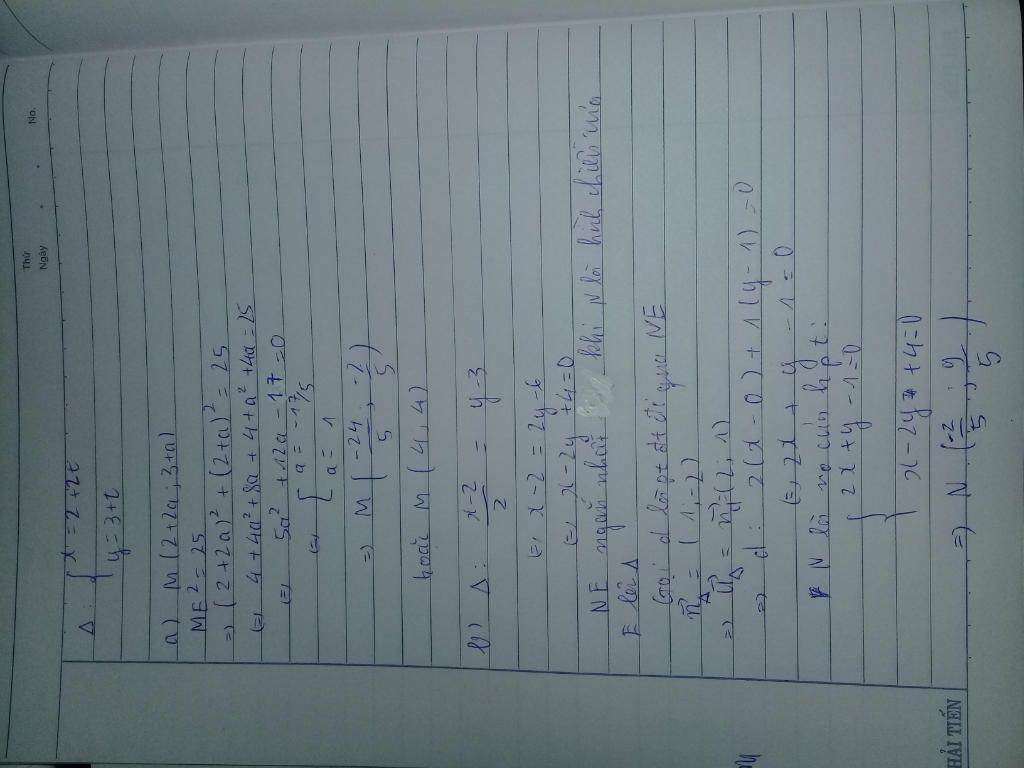 Thứ
Ngày
No.
Δ: { x = 2+2t
y = 3+t
a) M (2+2a; 3+a)
ME² = 25
=> (2+2a)² + (2+a)² = 25
(=) 4+4a²+8a+4+a²+4a=25
(=) 5a² + 12a - 17 = 0
(=) [ a = -17/5
a = 1
=> M ( -24/5 ; -2/5 )
hoặc M (4, 4)
b) Δ: x-2/2 = y-3
(=) x-2 = 2y-6
(=) x-2y+4=0
NE ngắn nhất khi N là hình chiếu của
E lên Δ
Gọi d là pt đt đi qua NE
n⃗Δ = (1; -2)
=> u⃗Δ = n⃗d = (2, 1)
=> d: 2(x-0) + 1(y-1) = 0
(=) 2x + y - 1 = 0
N là no của hpt:
{ 2x+y-1=0
x-2y+4=0
=> N (-2/5 ; 9/5)
HẢI TIẾN